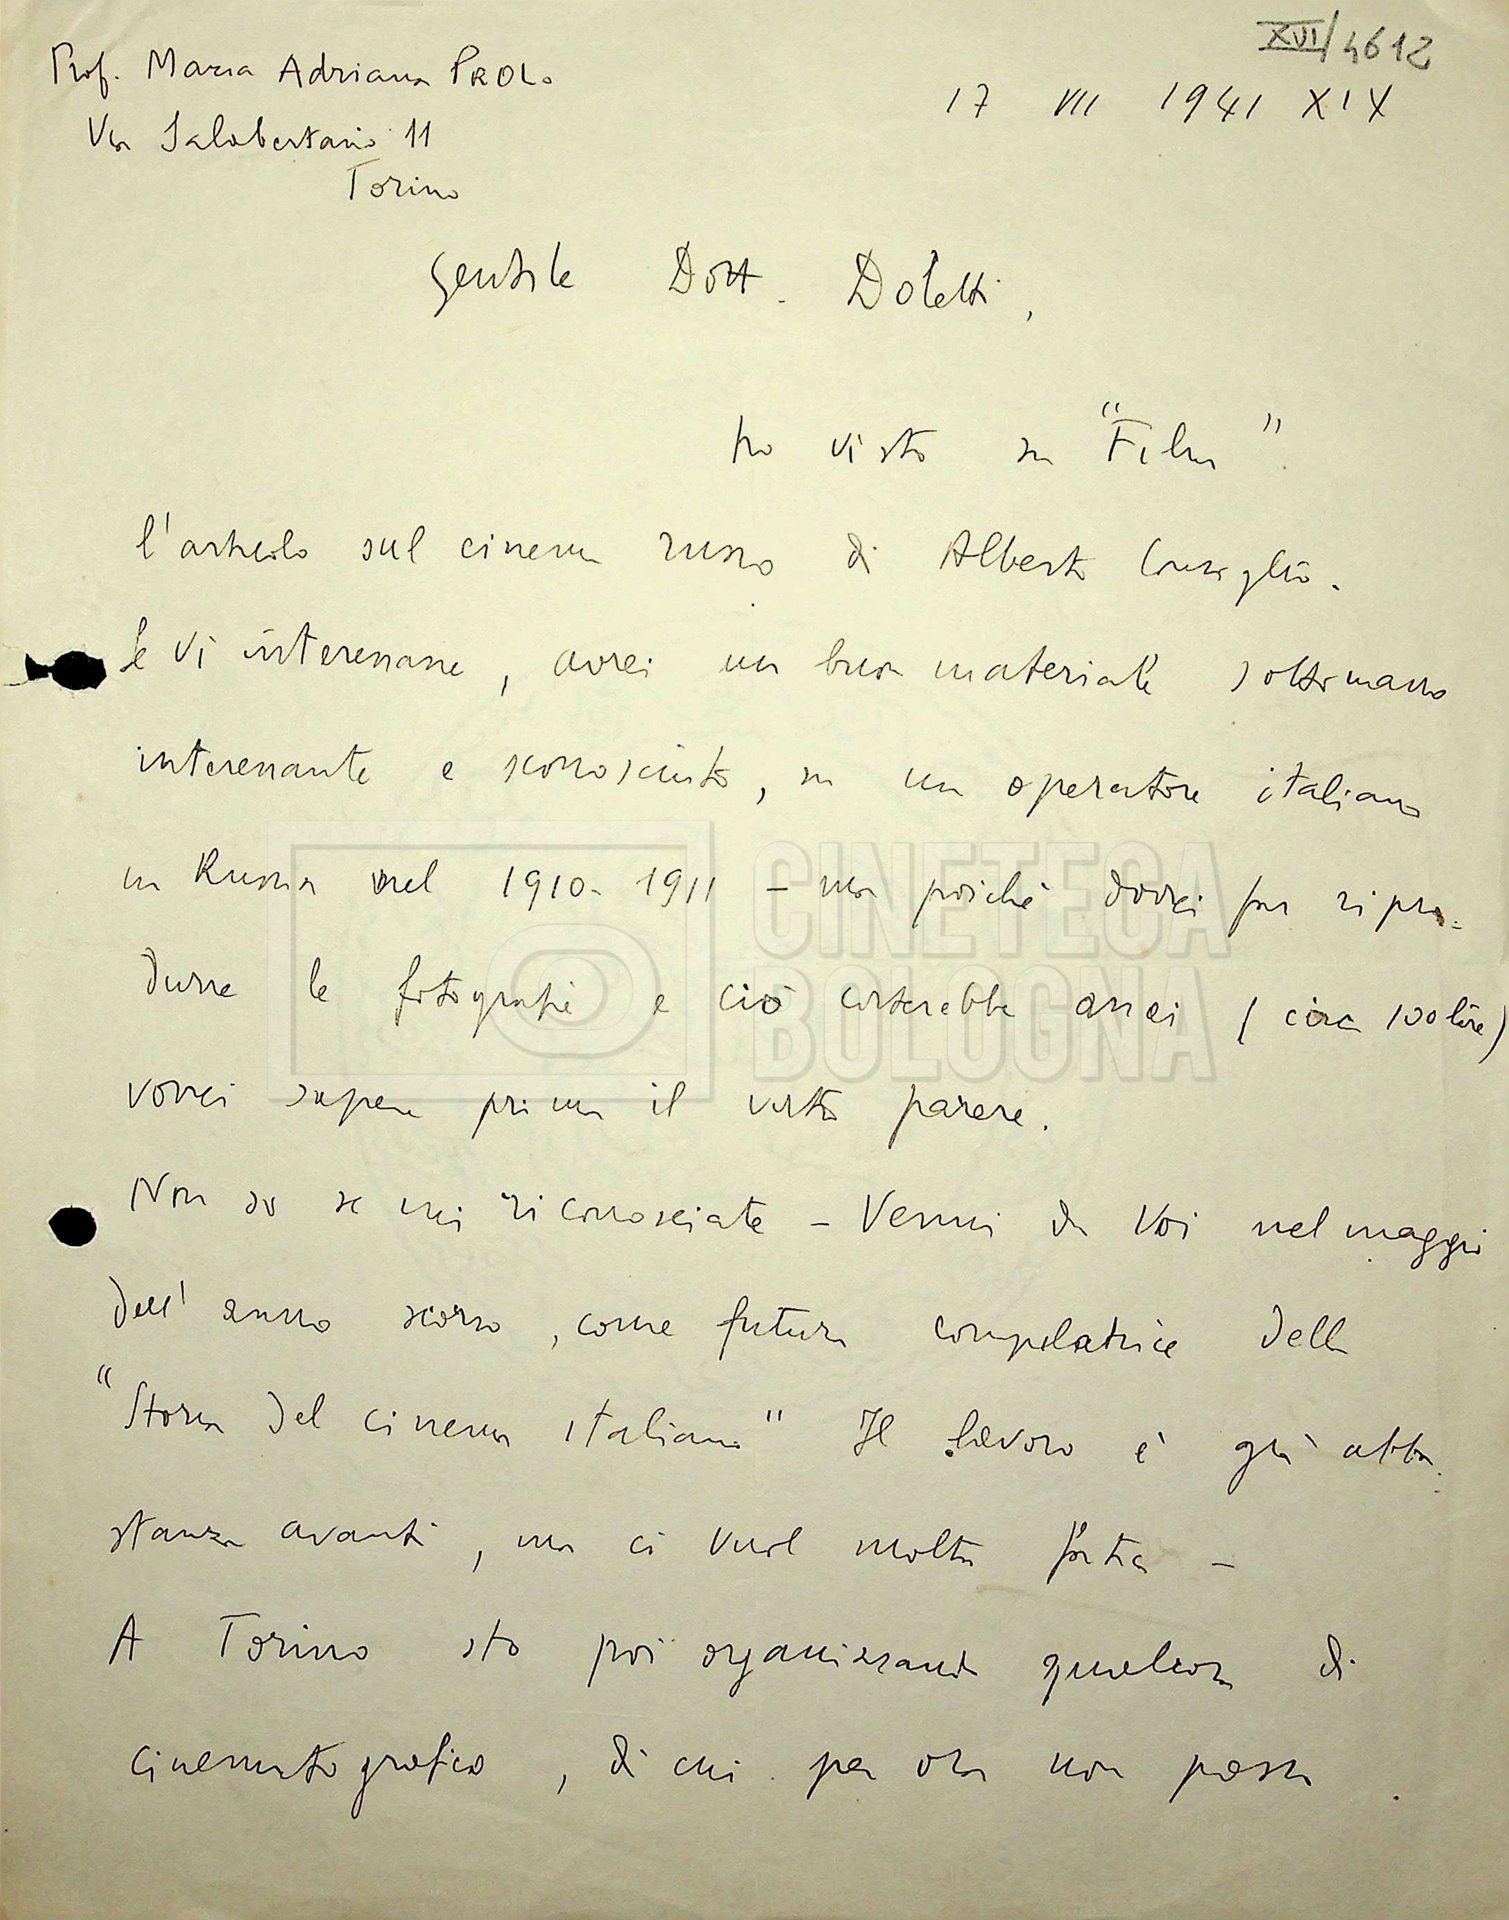 XVI/4612
Prof. Maria Adriana PROLO
17 VII 1941 XIX
Via Salabertano 11
Torino
Gentile Dott. Doletti,
ho visto su "Film".
l'articolo sul cinema russo di Alberto Consiglio.
Se vi interessasse, avrei un buon materiale sottomano
interessante e sconosciuto, su un operatore italiano
in Russia nel 1910-1911 - ma poiché dovrei far ripro-
durre le fotografie e ciò costerebbe assai (circa 100 lire)
vorrei sapere prima il vostro parere.
Non so se mi riconosciate - Venni da Voi nel maggio
dell'anno scorso, come futura compilatrice della
"Storia del cinema italiano" Il lavoro è già abba-
stanza avanti, ma ci vuol molta fatica -
A Torino sto poi organizzando qualcosa di
cinematografico, di cui per ora non posso
CINETECA
BOLOGNA